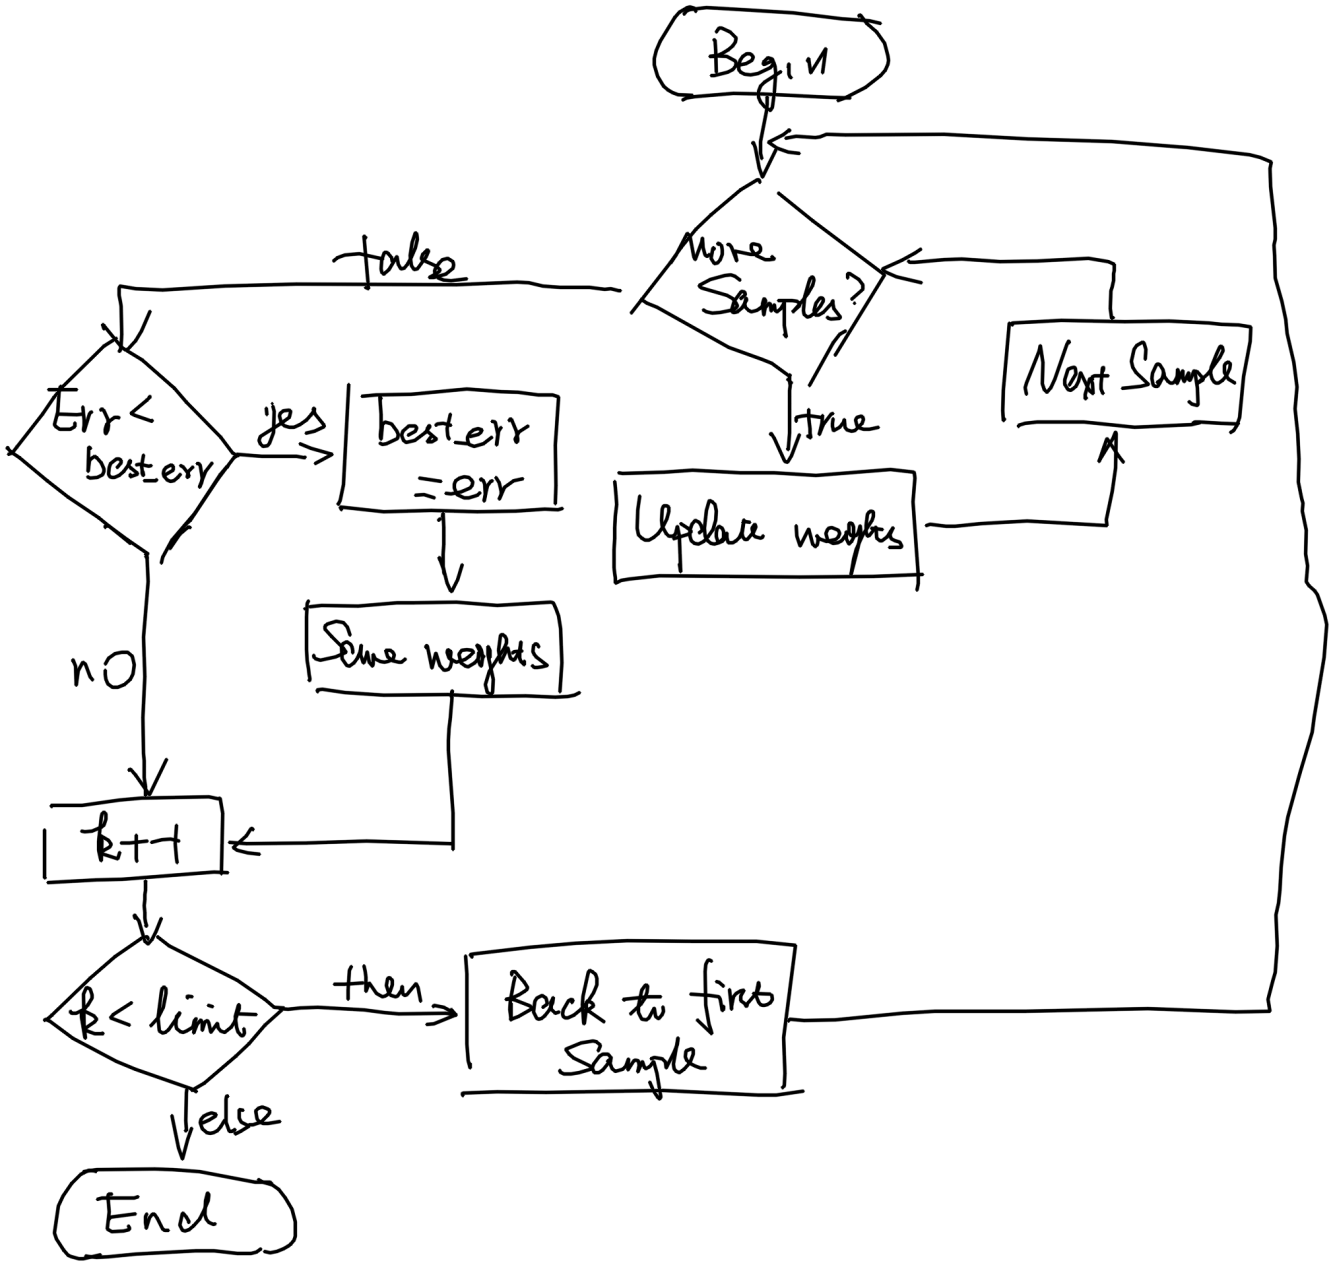 Begin
more
Samples?
false
true
Next Sample
Update weights
Err <
best_err
yes
best_err
= err
Save weights
no
k++
k < limit
then
Back to first
Sample
else
End